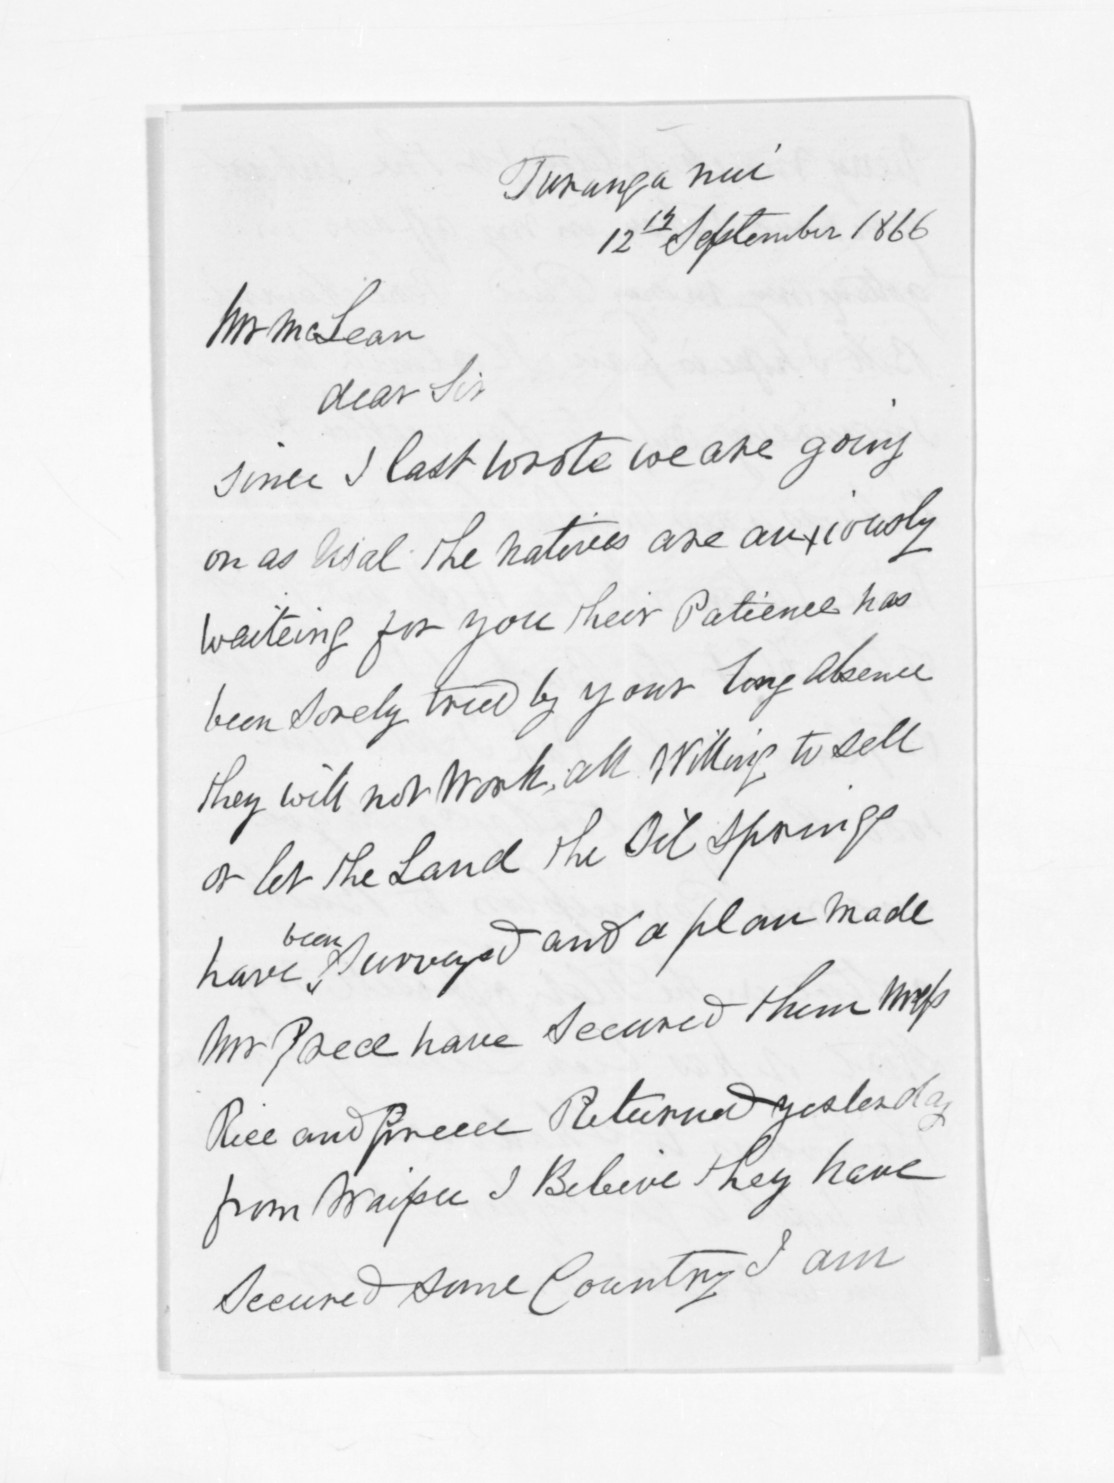 Turanga nui
12th September 1866
Mr McLean
dear Sir
since I last wrote we are going
on as usal the natives are anxiously
waiteing for you their Patience has
been sorely tried by your long absence
they will not work, all willing to sell
or let the Land the Oil springs
have been surveyed and a plan made
Mr Preece have secured them Mess
Rice and Preece Returned yesterday
from Waipu I Beleive they have
secured some Country I am